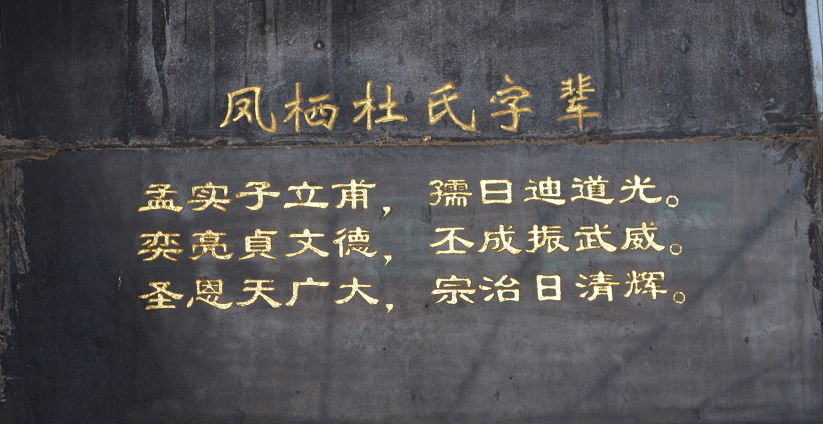 凤栖杜氏字辈
孟实子立甫，孺日迪道光。
奕亮貞文德，丕成振武威。
圣恩天广大，宗治日清辉。